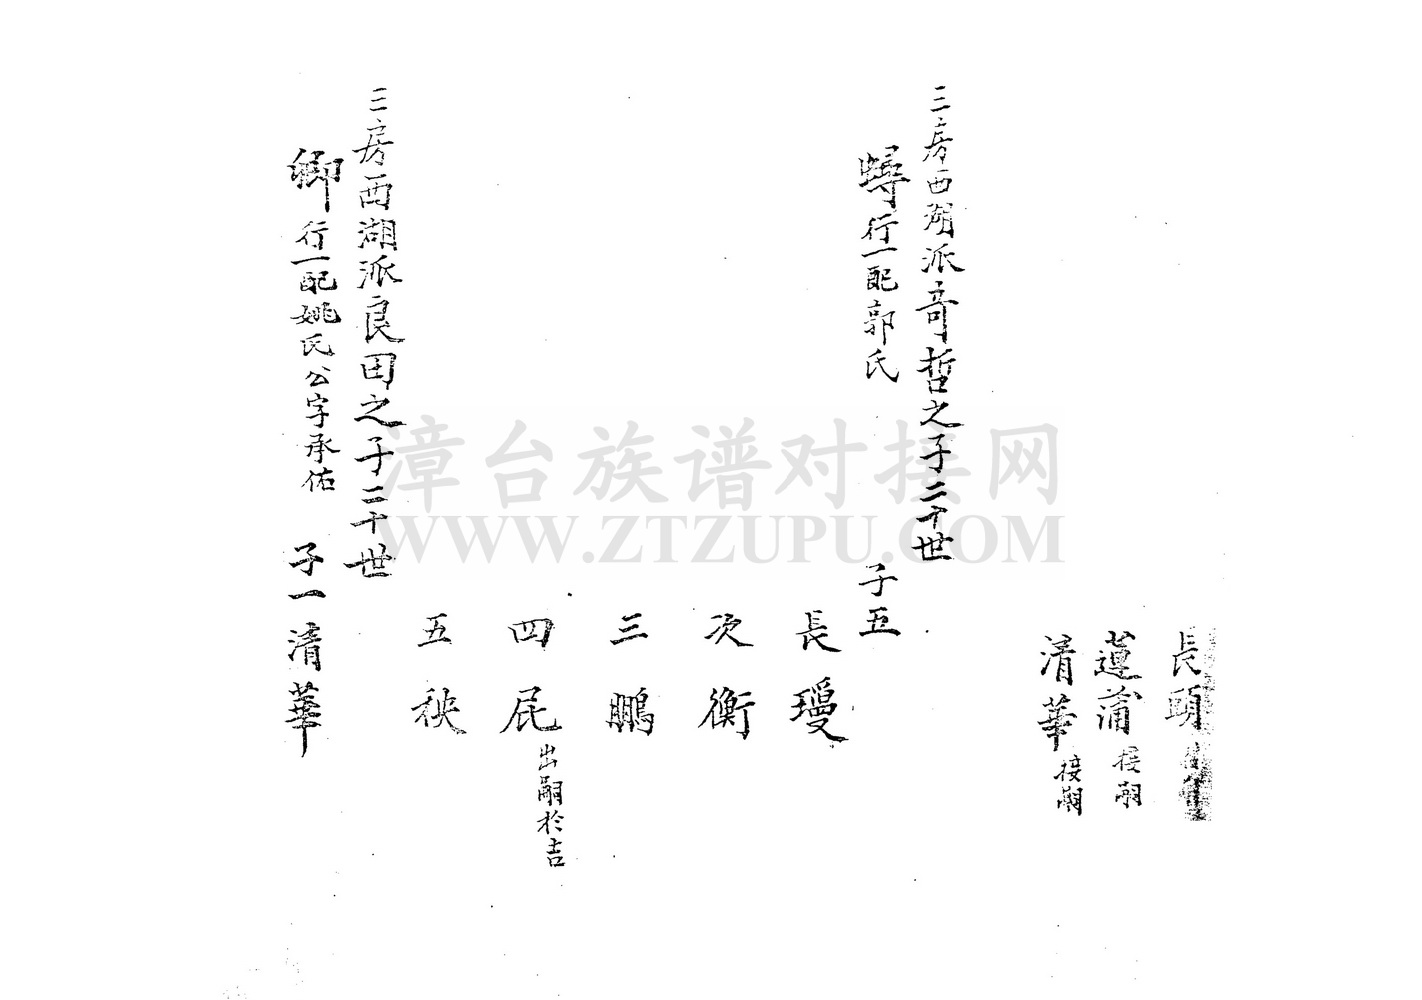 長頭
蓮蒲接嗣
清華接嗣
三房西湖派奇哲之子二十世
蟳行一配郭氏 子五
長璦
次衡
三鵬
四𡱈出嗣於吉
五秧
三房西湖派良田之子二十世
卿行一配姚氏公字承佑 子一清華
漳台族谱对接网
WWW.ZTZUPU.COM